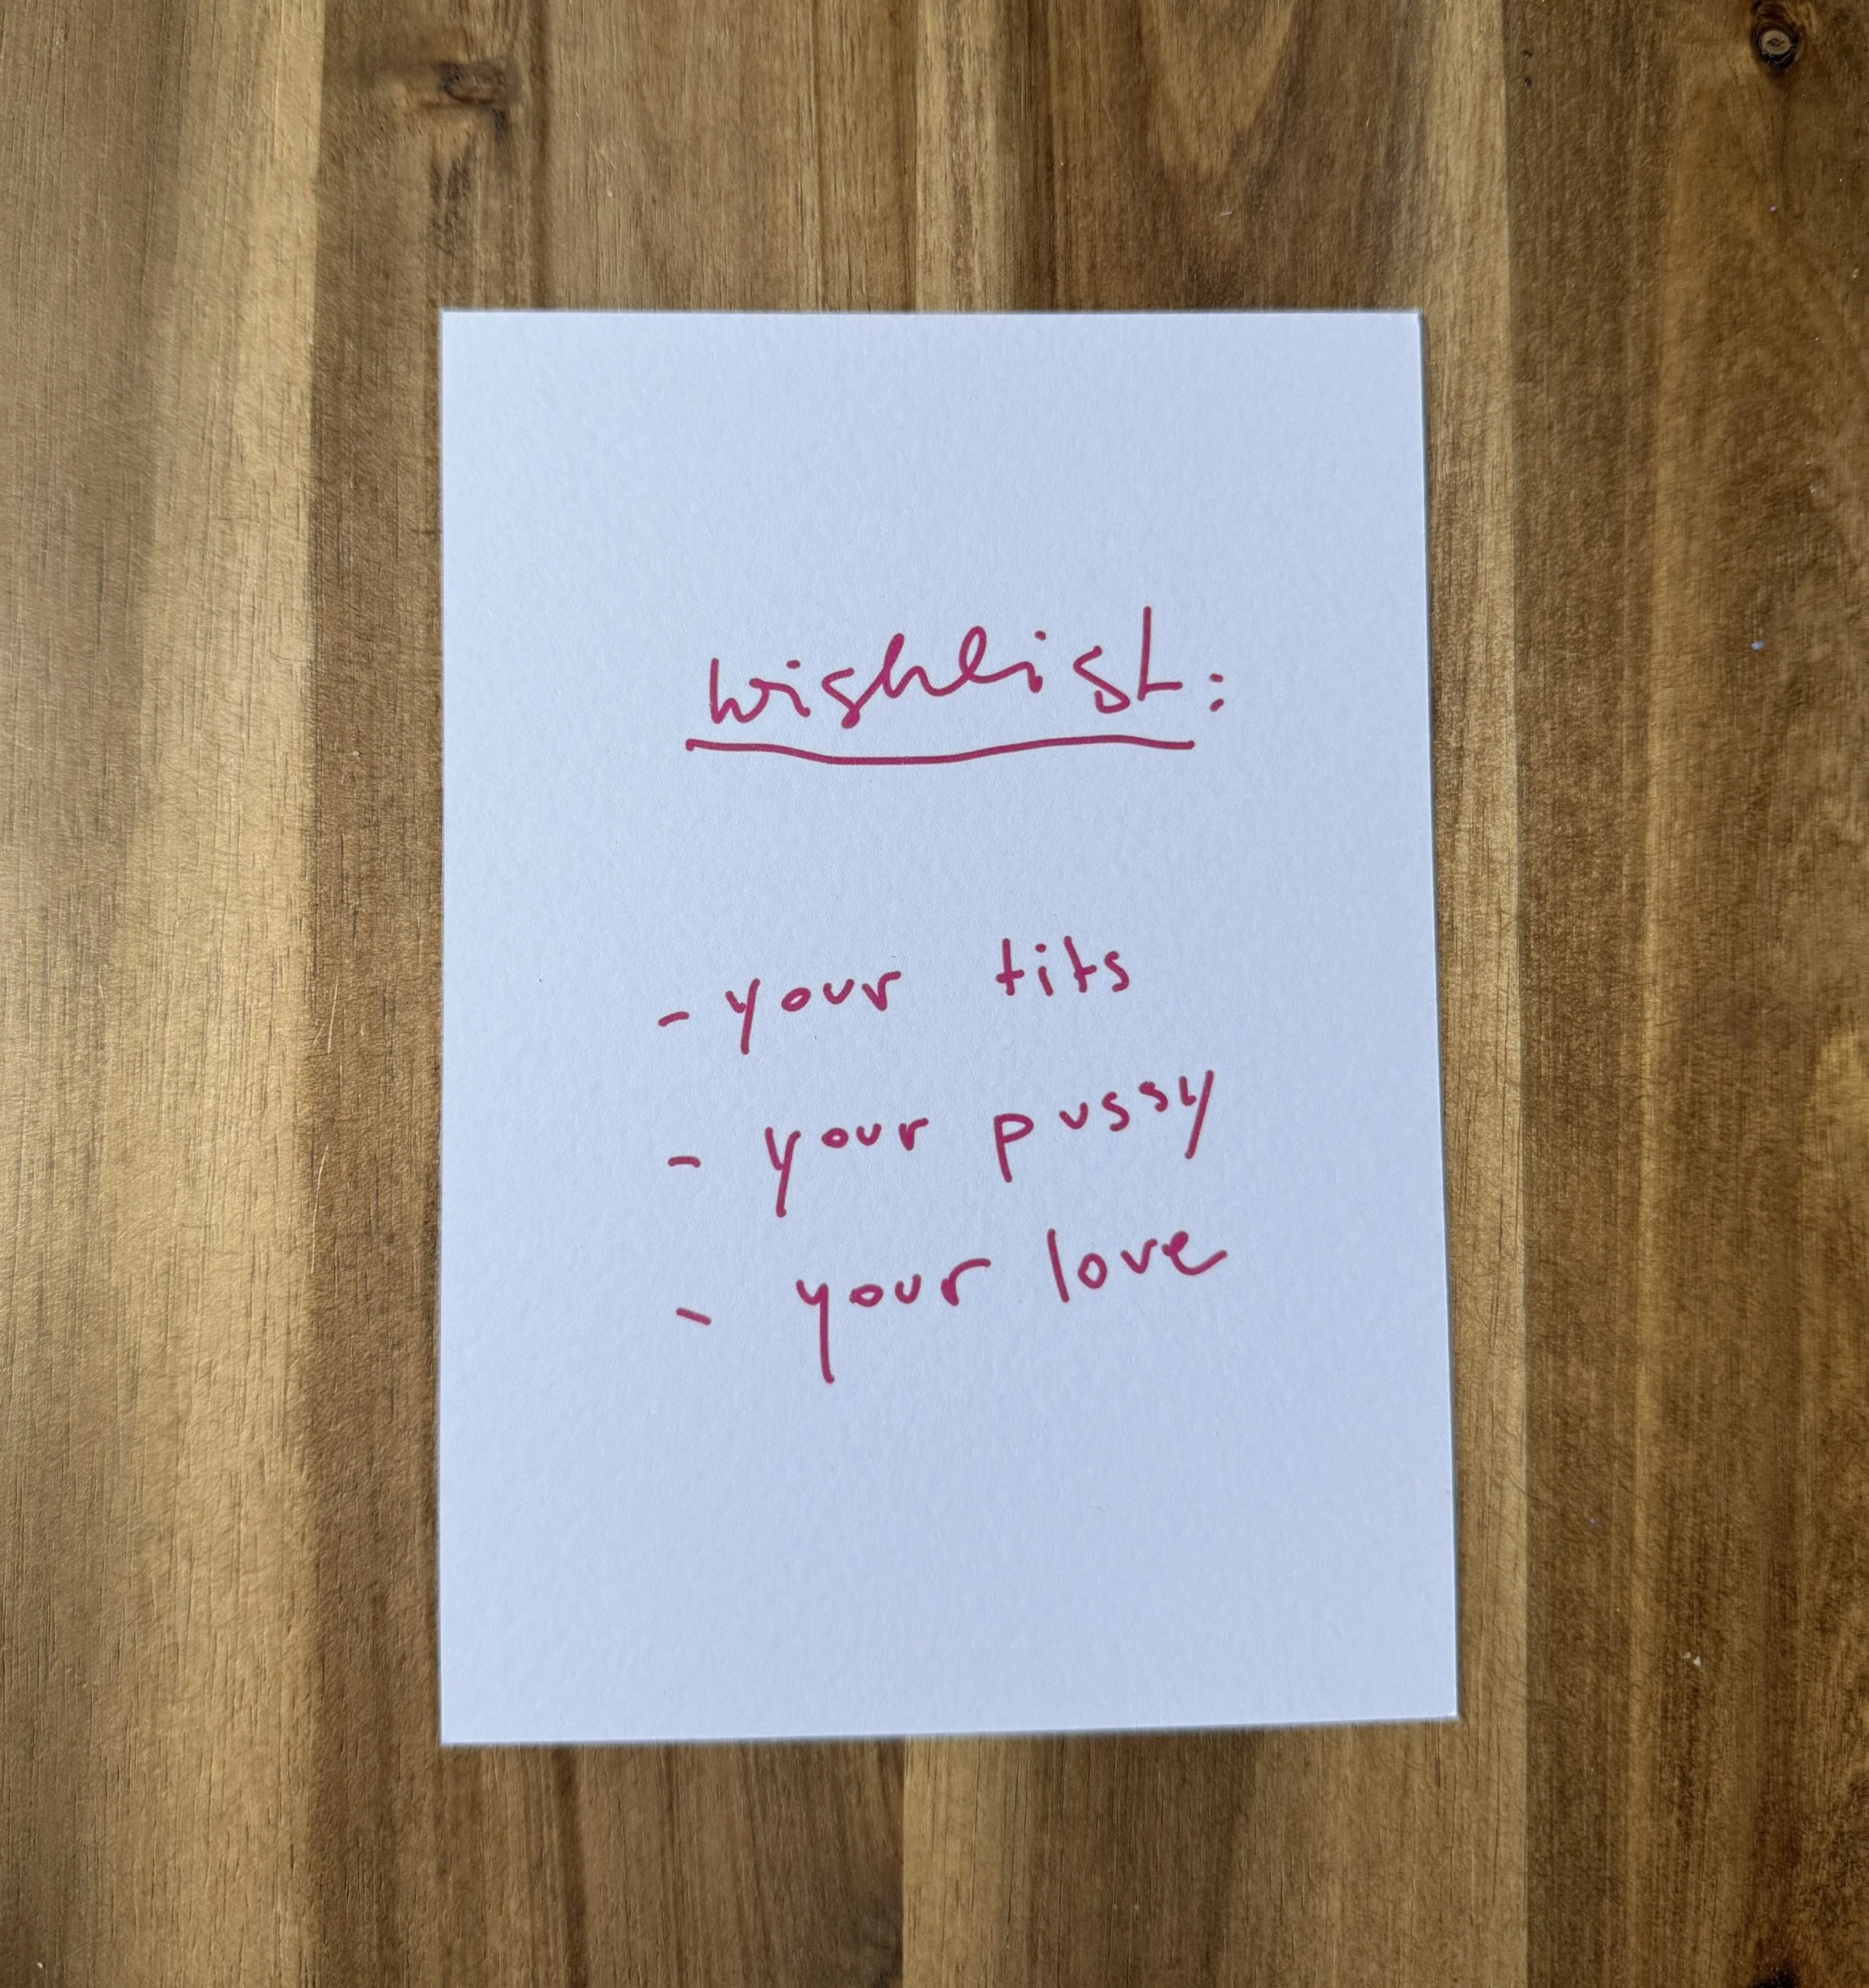 wishlist:
- your tits
- your pussy
- your love